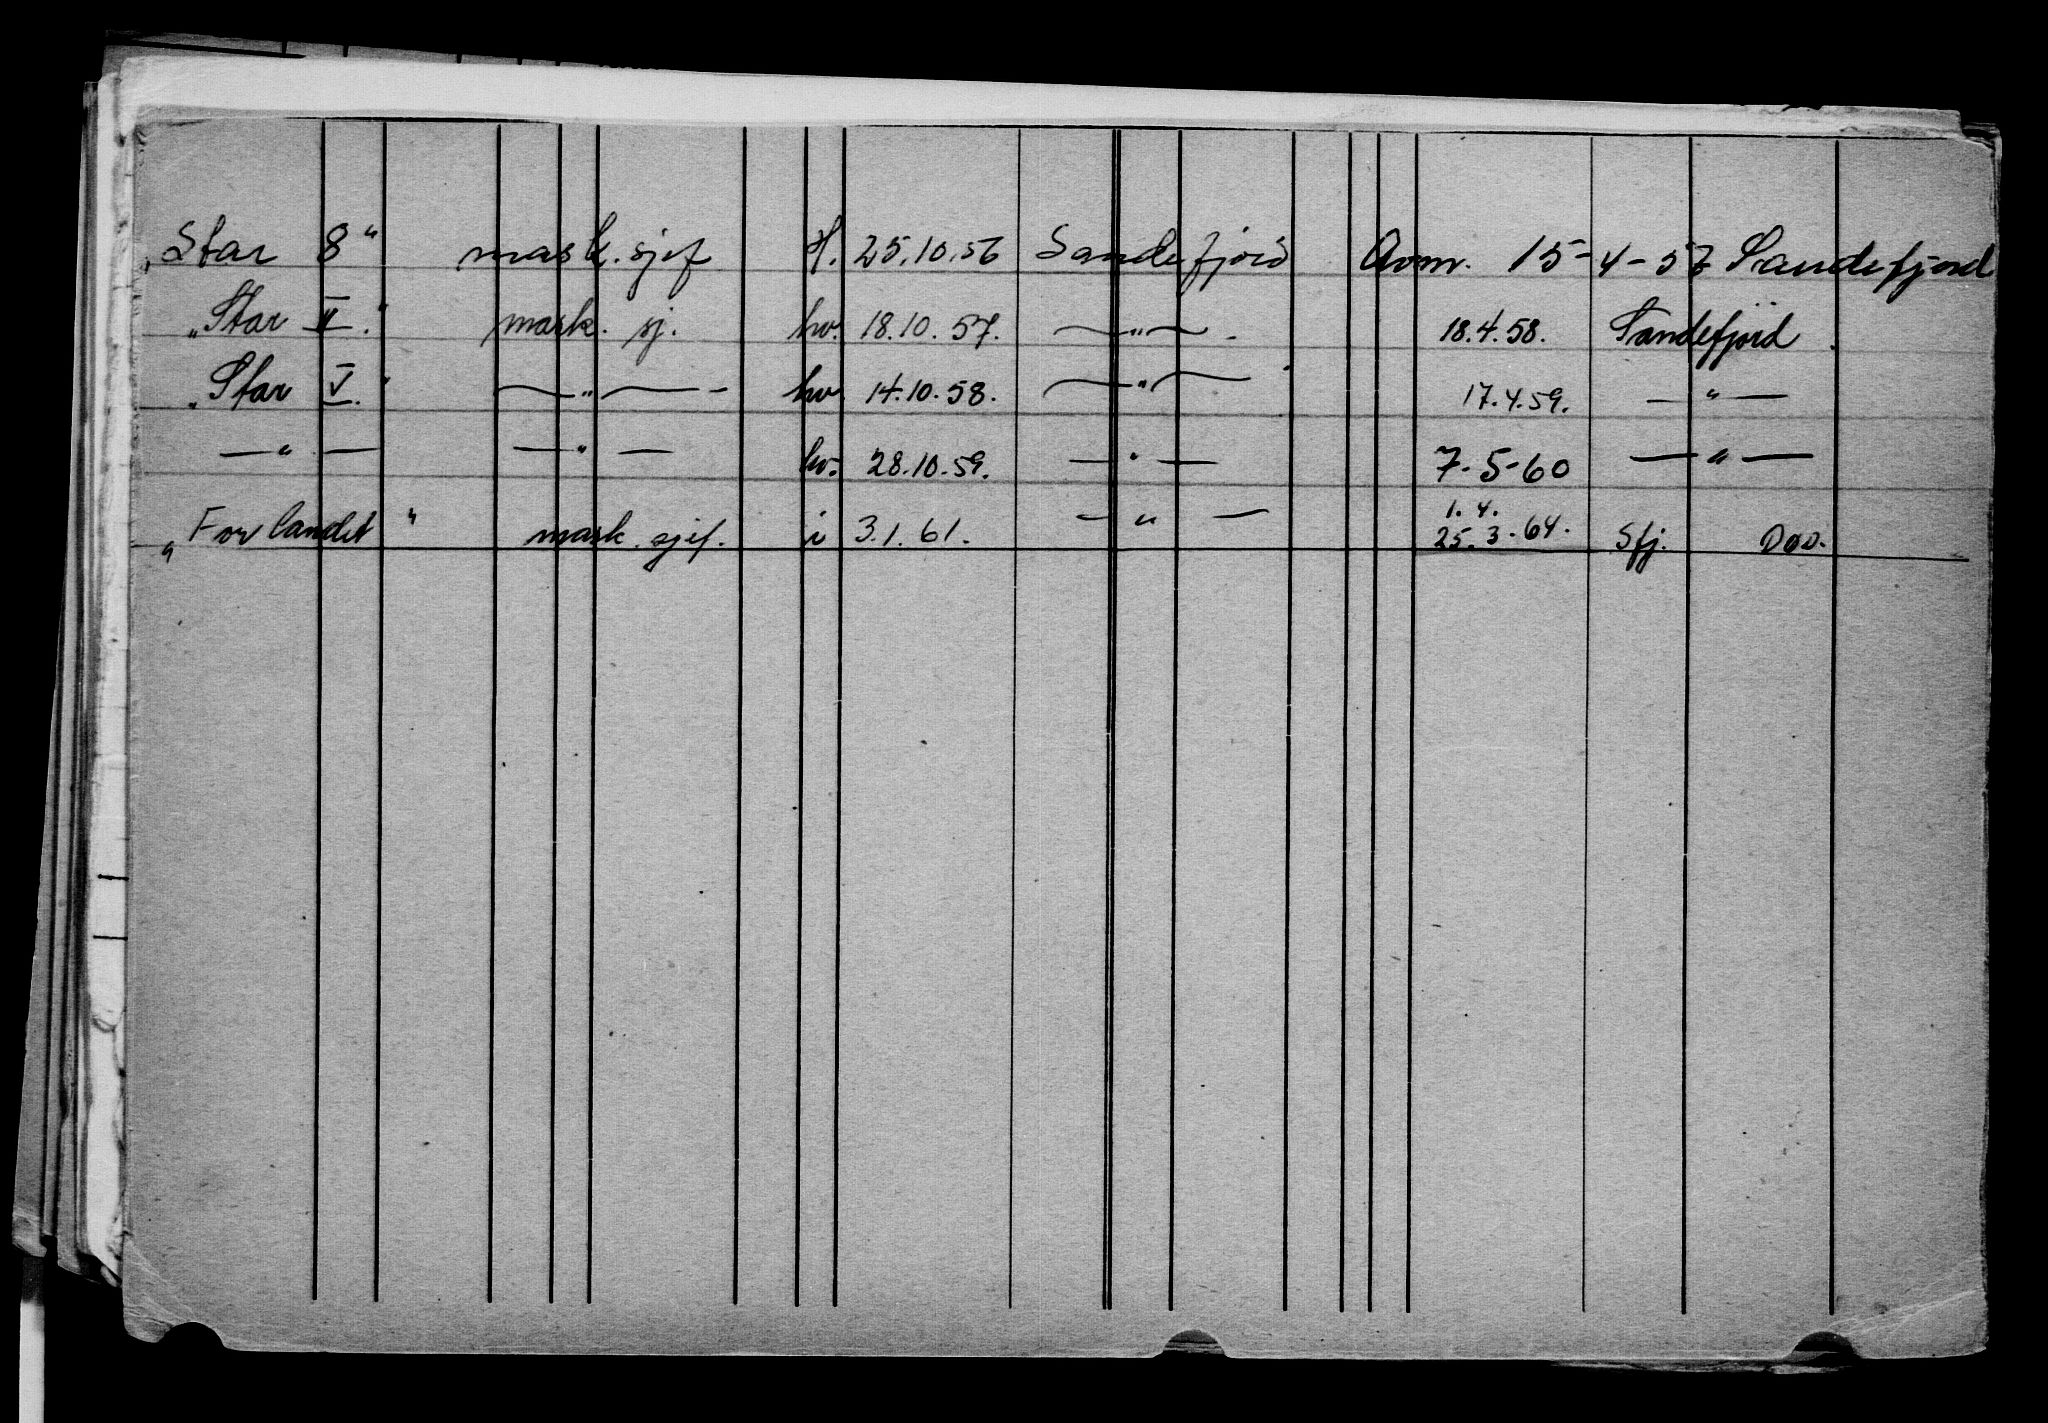 „Star 8" mask. sjef H. 25.10.56 Sandefjord Avm. 15-4-57 Sandefjord
„Star II." mask. sj. hv. 18.10.57. —"— 18.4.58. Sandefjord
„Star V." —"— hv. 14.10.58. —"— 17.4.59. —"—
—"— —"— hv. 28.10.59. —"— 7-5-60 —"—
1.4.
„Forlandet" mask. sjef. i 3.1.61. —"— 25.3.64. Sfj.